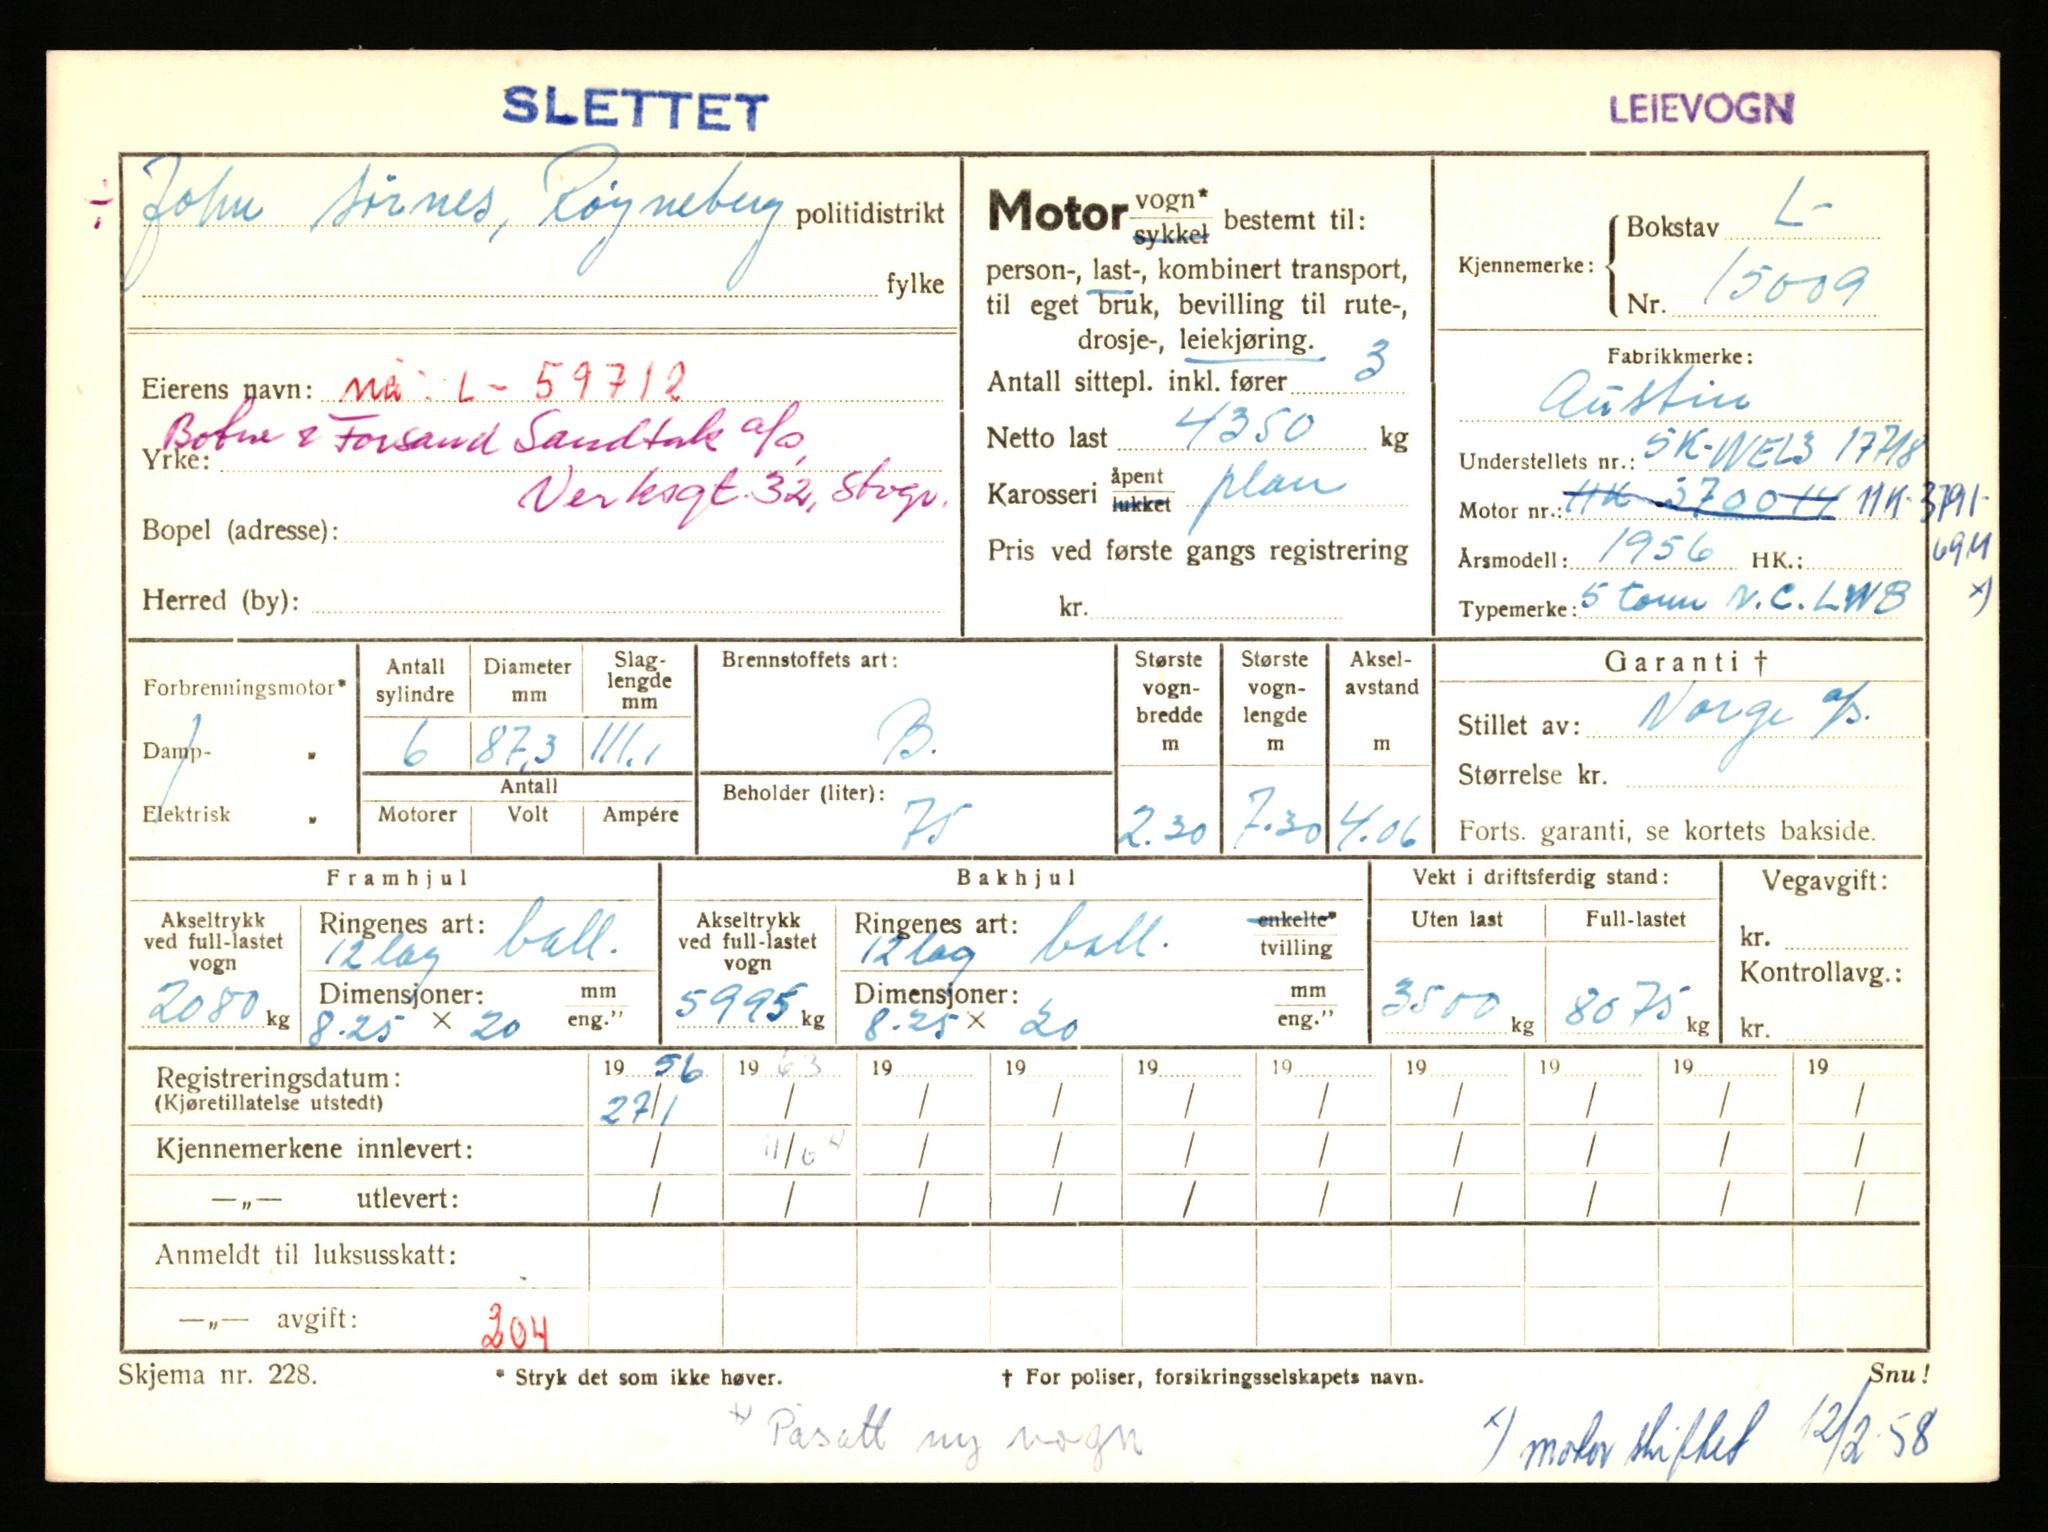 SLETTET
LEIEVOGN
÷ John Sørnes, Røyneberg politidistrikt
fylke
Eierens navn: nå: L- 59712
Bofne & Forsand Sandtak a/s,
Yrke:
Verksgt. 32, Stvgr.
Bopel (adresse):
Herred (by):
Motor vogn* / sykkel bestemt til:
person-, last-, kombinert transport,
til eget bruk, bevilling til rute-,
drosje-, leiekjøring.
Antall sittepl. inkl. fører 3
Netto last 4350 kg
Karosseri åpent / lukket plan
Pris ved første gangs registrering
kr.
Kjennemerke: Bokstav L-
Nr. 15009
Fabrikkmerke:
Austin
Understellets nr.: SK-WEL3 17718
Motor nr.: HK 3700 H 11K-3791-
69M
Årsmodell: 1956 HK.:
Typemerke: 5 tonn N.C. LWB x)
Forbrenningsmotor*
Damp- „
Elektrisk „
Antall sylindre 6
Diameter mm 87,3
Slag-lengde mm 111,1
Antall
Motorer Volt Ampére
Brennstoffets art:
B.
Beholder (liter):
75
Største vogn-bredde m 2.30
Største vogn-lengde m 7.30
Aksel-avstand m 4.06
Garanti †
Stillet av: Norge a/s.
Størrelse kr.
Forts. garanti, se kortets bakside.
Framhjul
Akseltrykk ved full-lastet vogn 2080 kg
Ringenes art: 12 lag ball.
Dimensjoner: mm / eng.”
8.25 × 20
Bakhjul
Akseltrykk ved full-lastet vogn 5995 kg
Ringenes art: 12 lag ball. enkelte* / tvilling
Dimensjoner: mm / eng.”
8.25 × 20
Vekt i driftsferdig stand:
Uten last 3500 kg
Full-lastet 8075 kg
Vegavgift:
kr.
Kontrollavg.:
kr.
Registreringsdatum: 19 56 19 63 19 19 19 19 19 19 19 19
(Kjøretillatelse utstedt) 27/1 / / / / / / / / /
Kjennemerkene innlevert: / 11/6 4 / / / / / / / /
—„— utlevert: / / / / / / / / / /
Anmeldt til luksusskatt:
—„— avgift: 204
Skjema nr. 228.
* Stryk det som ikke høver.
† For poliser, forsikringsselskapets navn.
Snu!
Påsatt ny vogn
x) motor skiftet 12/2-58